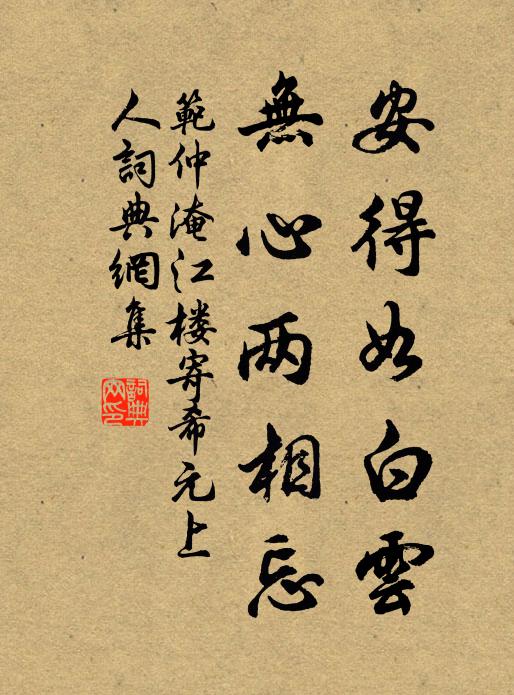 安得如白雲
無心两相忘
範仲淹江楼寄希元上
人詞典網集
詞典
网印